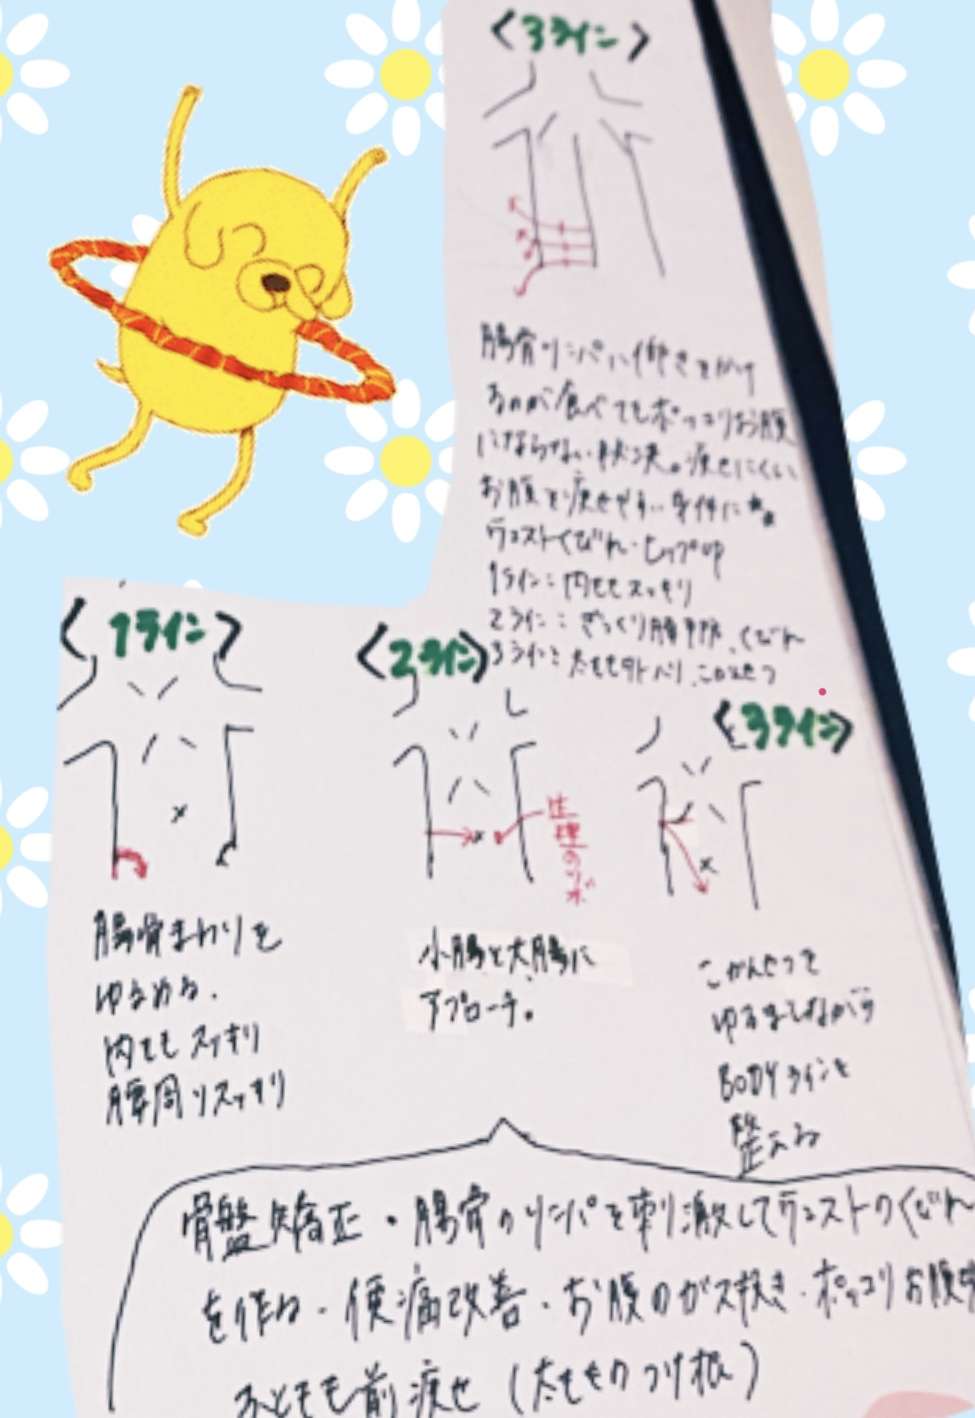 〈3ライン〉
腸骨リンパに働きをかけ
るのが食べてもポッコリお腹
にならない秘決。痩せにくい
お腹を痩せやすい身体に
ウエストくびれ・ヒップup
1ライン：内ももスッキリ
2ライン：ざっくり腸予防、くびれ
3ライン：太もも外ハリ、こかんせつ
〈1ライン〉
腸骨まわりを
ゆるめる.
内もも スッキリ
腰周りスッキリ
〈2ライン〉
生理のツボ
小腸と大腸に
アプローチ。
〈3ライン〉
こかんせつを
ゆるましながら
BODYラインを
整える
骨盤矯正・腸骨のリンパを刺激してウエストのくびれ
を作る・便痛改善・お腹のガス抜き・ポッコリお腹
ふともも前痩せ（太もものつけ根）